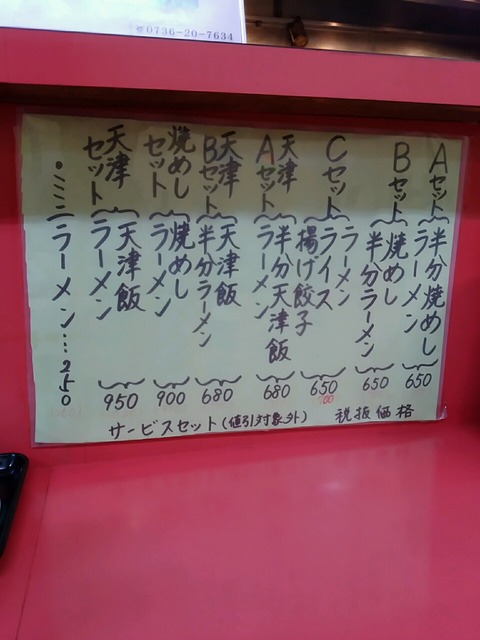 ☎0736-20-7634
Aセット
半分焼めし
ラーメン
650
Bセット
焼めし
半分ラーメン
650
Cセット
ラーメン
ライス
揚げ餃子
650
700
天津Aセット
半分天津飯
ラーメン
680
天津Bセット
天津飯
半分ラーメン
680
焼めしセット
焼めし
ラーメン
900
天津セット
天津飯
ラーメン
950
・ミニラーメン…250
サービスセット(値引対象外)
税抜価格